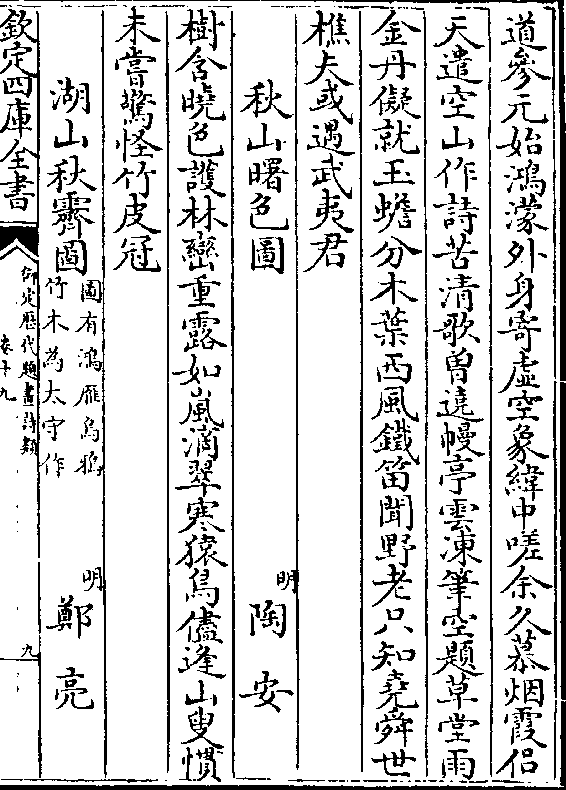 道參元始鴻濛外身寄虛空象緯中嗟余久慕烟霞侣
天遣空山作詩苦清歌曽遶幔亭雲凍筆空題草堂雨
金丹儗就玉蟾分木葉西風鐵笛聞野老只知堯舜世
樵夫或遇武夷君
秋山曙色圖
明
陶安
樹含曉色護林巒重露如嵐滴翠寒猿鳥儘逢山叟慣
未嘗驚怪竹皮冠
湖山秋霽圖
圖有鴻雁烏鴉
竹木為太守作
明
鄭亮
欽定四庫全書
御定歴代題畫詩類
卷十九
九